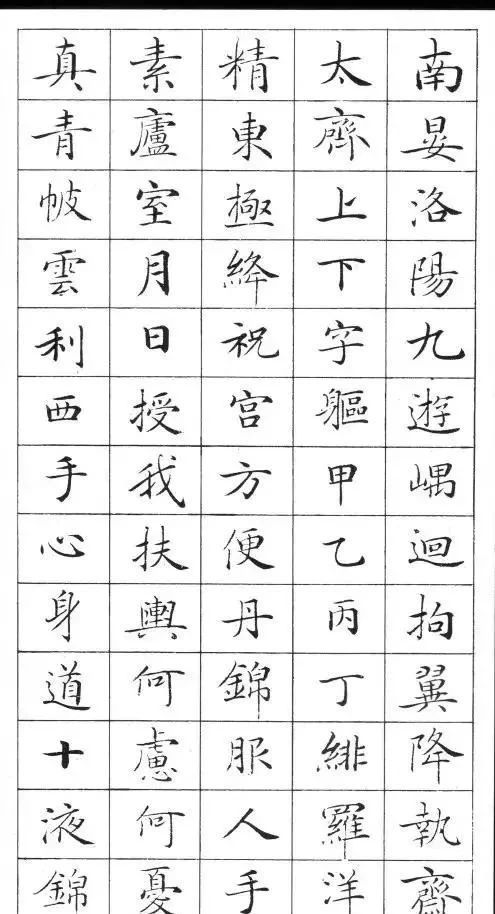 南晏洛陽九遊嵎迴拘翼降執
太齊上下字軀甲乙丙丁緋羅洋
精東極絳祝宫方便丹錦服人手
素廬室月日授我扶輿何慮何憂
真青帔雲利西手心身道十液錦